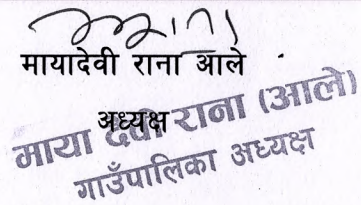 मायादेवी राना आले
अध्यक्ष
माया देवी राना (आले)
गाउँपालिका अध्यक्ष